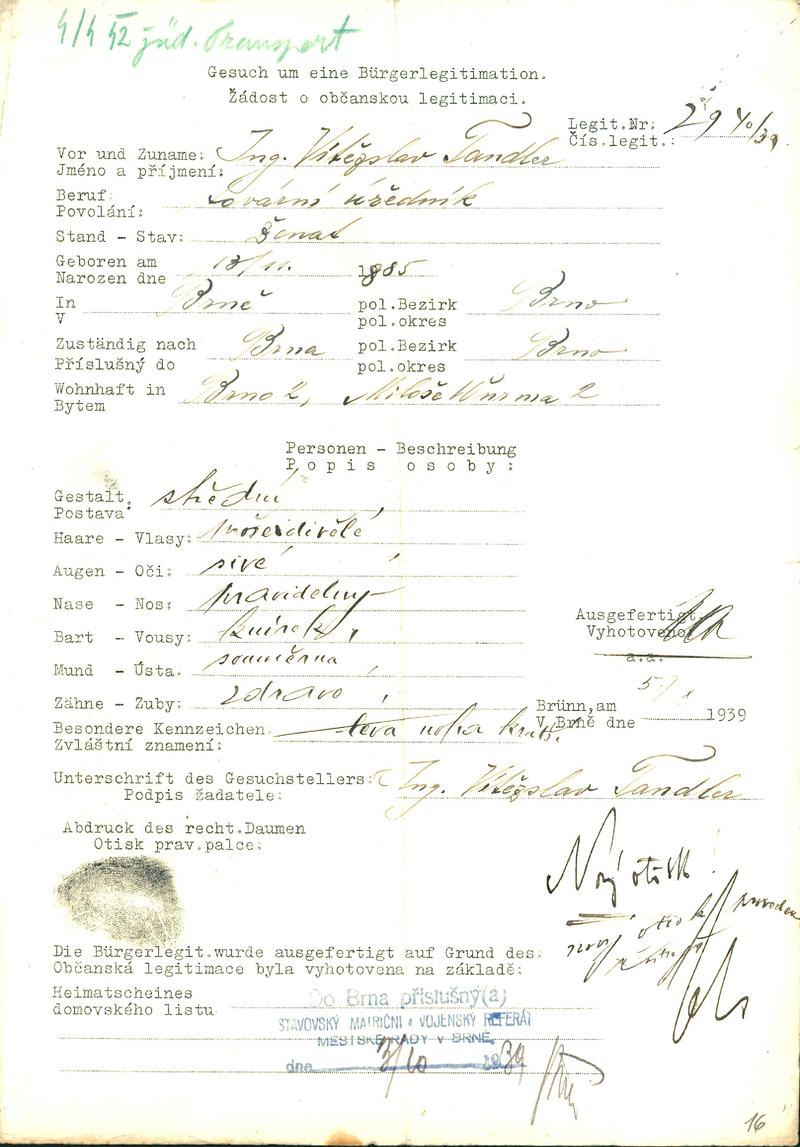 4/4 42 jüd. Transport
Gesuch um eine Bürgerlegitimation.
Žádost o občanskou legitimaci.
Legit.Nr: 2940/39
Čís.legit.:
Vor und Zuname: Ing. Vítězslav Tandler
Jméno a příjmení:
Beruf: tovární úředník
Povolání:
Stand - Stav: ženat
Geboren am 13/11. 1885
Narozen dne
In Brně pol.Bezirk Brno
V pol.okres
Zuständig nach Brna pol.Bezirk Brno
Příslušný do pol.okres
Wohnhaft in Brno 2, Miloše Wurma 2
Bytem
Personen - Beschreibung
Popis osoby:
Gestalt: střední
Postava:
Haare - Vlasy: prošedivělé
Augen - Oči: sivé
Nase - Nos: pravidelný
Bart - Vousy: knírek
Mund - Ústa: souměrná
Zähne - Zuby: zdravé
Ausgefertigt
Vyhotoveno
a.a.
Brünn,am
V Brně dne 1939
Besondere Kennzeichen: levá noha
Zvláštní znamení:
Unterschrift des Gesuchstellers: Ing. Vítězslav Tandler
Podpis žadatele:
Abdruck des recht.Daumen
Otisk prav.palce:
Nový otisk!
nový otisk proveden
Die Bürgerlegit.wurde ausgefertigt auf Grund des:
Občanská legitimace byla vyhotovena na základě:
Heimatscheines
domovského listu
Do Brna příslušný(á)
STAVOVSKÝ MATRIČNÍ a VOJENSKÝ REFERÁT
MĚSTSKÉ RADY v BRNĚ,
dne 3/10 1939
16